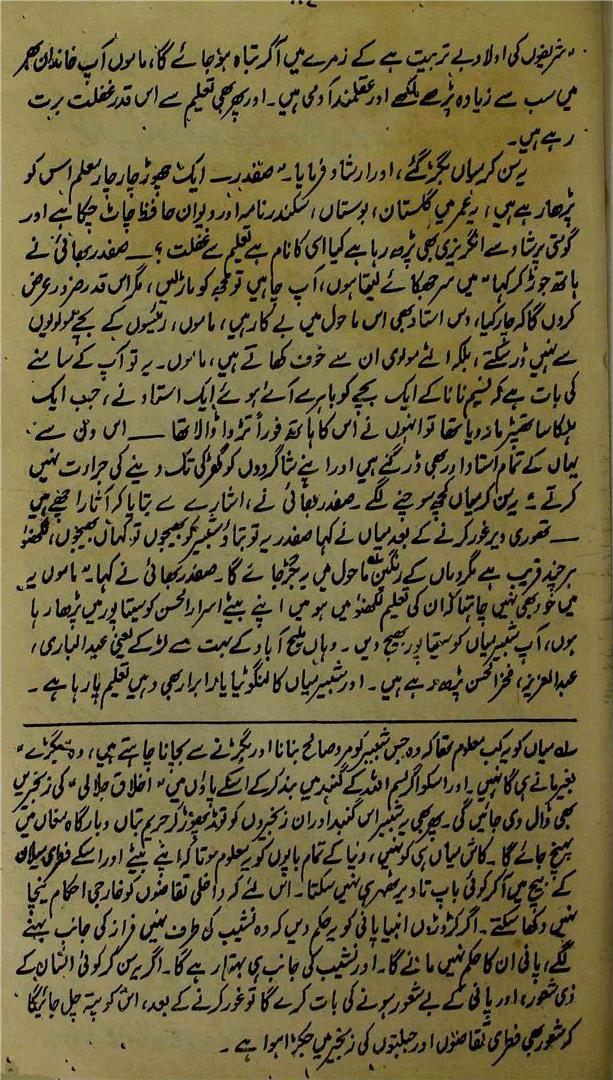 "شریفوں کی اولاد بے تربیت ہے کے زمرے میں آ کر تباہ ہو جائے گا، ماموں آپ خاندان بھر
میں سب سے زیادہ پڑھے لکھے اور عقلمند آدمی ہیں۔ اور پھر بھی تعلیم سے اس قدر غفلت برت
رہے ہیں۔
یہ سن کر میاں بگڑ گئے، اور ارشاد فرمایا۔ "صفدر — ایک چھوڑ چار چار معلم اس کو
پڑھا رہے ہیں، یہ عمر میں گلستان، بوستاں، سکندر نامہ اور دیوان حافظ چاٹ چکا ہے اور
گومتی پرشاد سے انگریزی بھی پڑھ رہا ہے کیا اسی کا نام ہے تعلیم سے غفلت؟ — صفدر بھائی نے
ہاتھ جوڑ کر کہا "میں سر جھکائے لیتا ہوں، آپ چاہیں تو مجھ کو مار لیں، مگر اس قدر ضرور عرض
کروں گا کہ چار کیا، دس استاد بھی اس ماحول میں بے کار ہیں، ماموں، رئیسوں کے بچے مولویوں
سے نہیں ڈر سکتے، بلکہ الٹے مولوی ان سے خوف کھاتے ہیں، ماموں۔ یہ تو آپ کے سامنے
کی بات ہے کہ نسیم نانا کے ایک بچے کو باہر سے آئے ہوئے ایک استاد نے، جب ایک
ہلکا سا تھپڑ مار دیا تھا تو انہوں نے اس کا ہاتھ فوراً تڑوا ڈالا تھا — اس دن سے
یہاں کے تمام استاد اور بھی ڈر گئے ہیں اور اپنے شاگردوں کو گھڑکی تک دینے کی جراءت نہیں
کرتے" یہ سن کر میاں کچھ سوچنے لگے۔ صفدر بھائی نے، اشارے سے بتایا کہ آثار اچھے ہیں
— تھوری دیر غور کرنے کے بعد میاں نے کہا صفدر یہ تو بتاؤ شبیر کو بھیجوں تو کہاں بھیجوں، لکھنؤ
ہرچند قریب ہے مگر وہاں کے رنگین ماحول میں یہ بگڑ جائے گا۔ صفدر بھائی نے کہا "ماموں یہ
میں خود بھی نہیں چاہتا کہ ان کی تعلیم لکھنؤ میں ہو میں اپنے بیٹے اسرار الحسن کو سیتا پور میں پڑھا رہا
ہوں، آپ شبیر میاں کو سیتا پور بھیج دیں۔ وہاں ملیح آباد کے بہت سے لڑکے یعنی عبد الباری،
عبد العزیز، فخر الحسن پڑھ رہے ہیں۔ اور شبیر میاں کا لنگوٹیا یار ابرار بھی وہیں تعلیم پا رہا ہے۔
لہ میاں کو یہ کب معلوم تھا کہ وہ جس شبیر کو مرد صالح بنانا اور بگڑنے سے بچانا چاہتے ہیں، وہ "بگڑے"
بغیر مانے ہی گا نہیں۔ اور اسکو اگر بسم اللہ کے گنبد میں بند کر کے اسکے پاؤں میں "اخلاق جلالی" کی زنجیریں
بھی ڈال دی جائیں گی۔ پھر بھی یہ شبیر اس گنبد اور ان زنجیروں کو توڑ پھوڑ کر حریم بتاں و بارگاہ مغاں میں
پہنچ جائے گا۔ کاش میاں ہی کو نہیں، دنیا کے تمام باپوں کو یہ معلوم ہوتا کہ اپنے بیٹے اور اسکے فطری میلان
کے بیچ میں آ کر کوئی باپ تا دیر ٹھہر ہی نہیں سکتا۔ اس لئے کہ داخلی تقاضوں کو خارجی احکام نیچا
نہیں دکھا سکتے۔ اگر کڑوڑوں انبیا پانی کو یہ حکم دیں کہ وہ نشیب کی طرف نہیں فراز کی جانب بہنے
لگے، پانی ان کا حکم نہیں مانے گا۔ اور نشیب کی جانب ہی بہتا رہے گا۔ اگر یہ سن کر کوئی انسان کے
ذی شعور، اور پانی کے بے شعور ہونے کی بات کرے گا تو غور کرنے کے بعد، اس کو پتہ چل جائیگا
کہ شعور بھی فطری تقاضوں اور جبلتوں کی زنجیر میں جکڑا ہوا ہے۔